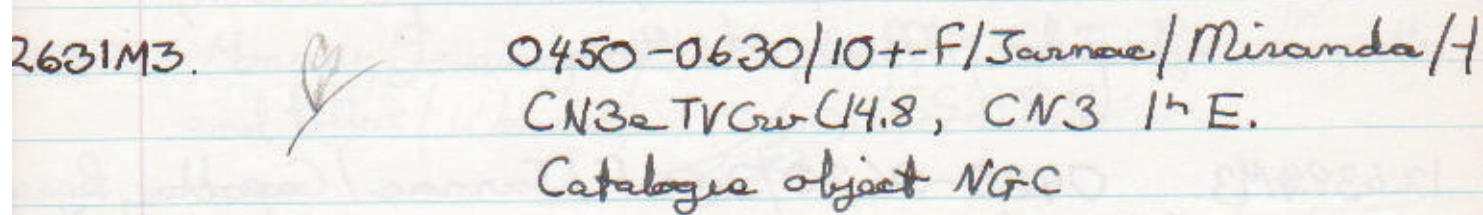 2631M3. 0450-0630/10+-F/Jarnac/Miranda/
CN3 TV Crv C14.8, CN3 1h E.
Catalogue object NGC